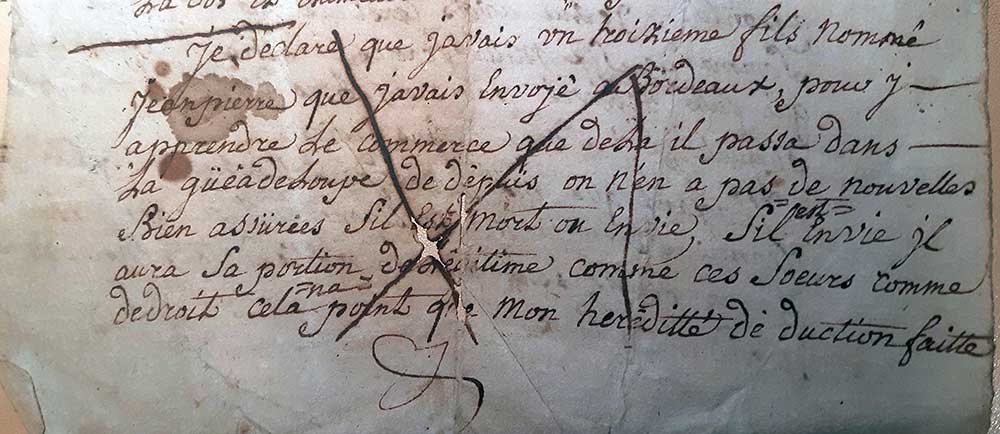 La
Je declare que javais un troixieme fils nommé
Jeanpierre que javais Envoyé a Bordeaux, pour j
apprendre Le Commerce que dela il passa dans
La güeadeloupe de depuis on n'en a pas de nouvelles
Bien assürées Sil Est mort ou Envie, Sil est Envie jl
aura Sa portion de légitime comme ces Soeurs comme
dedroit cela na point que mon hereditté déduction faitte